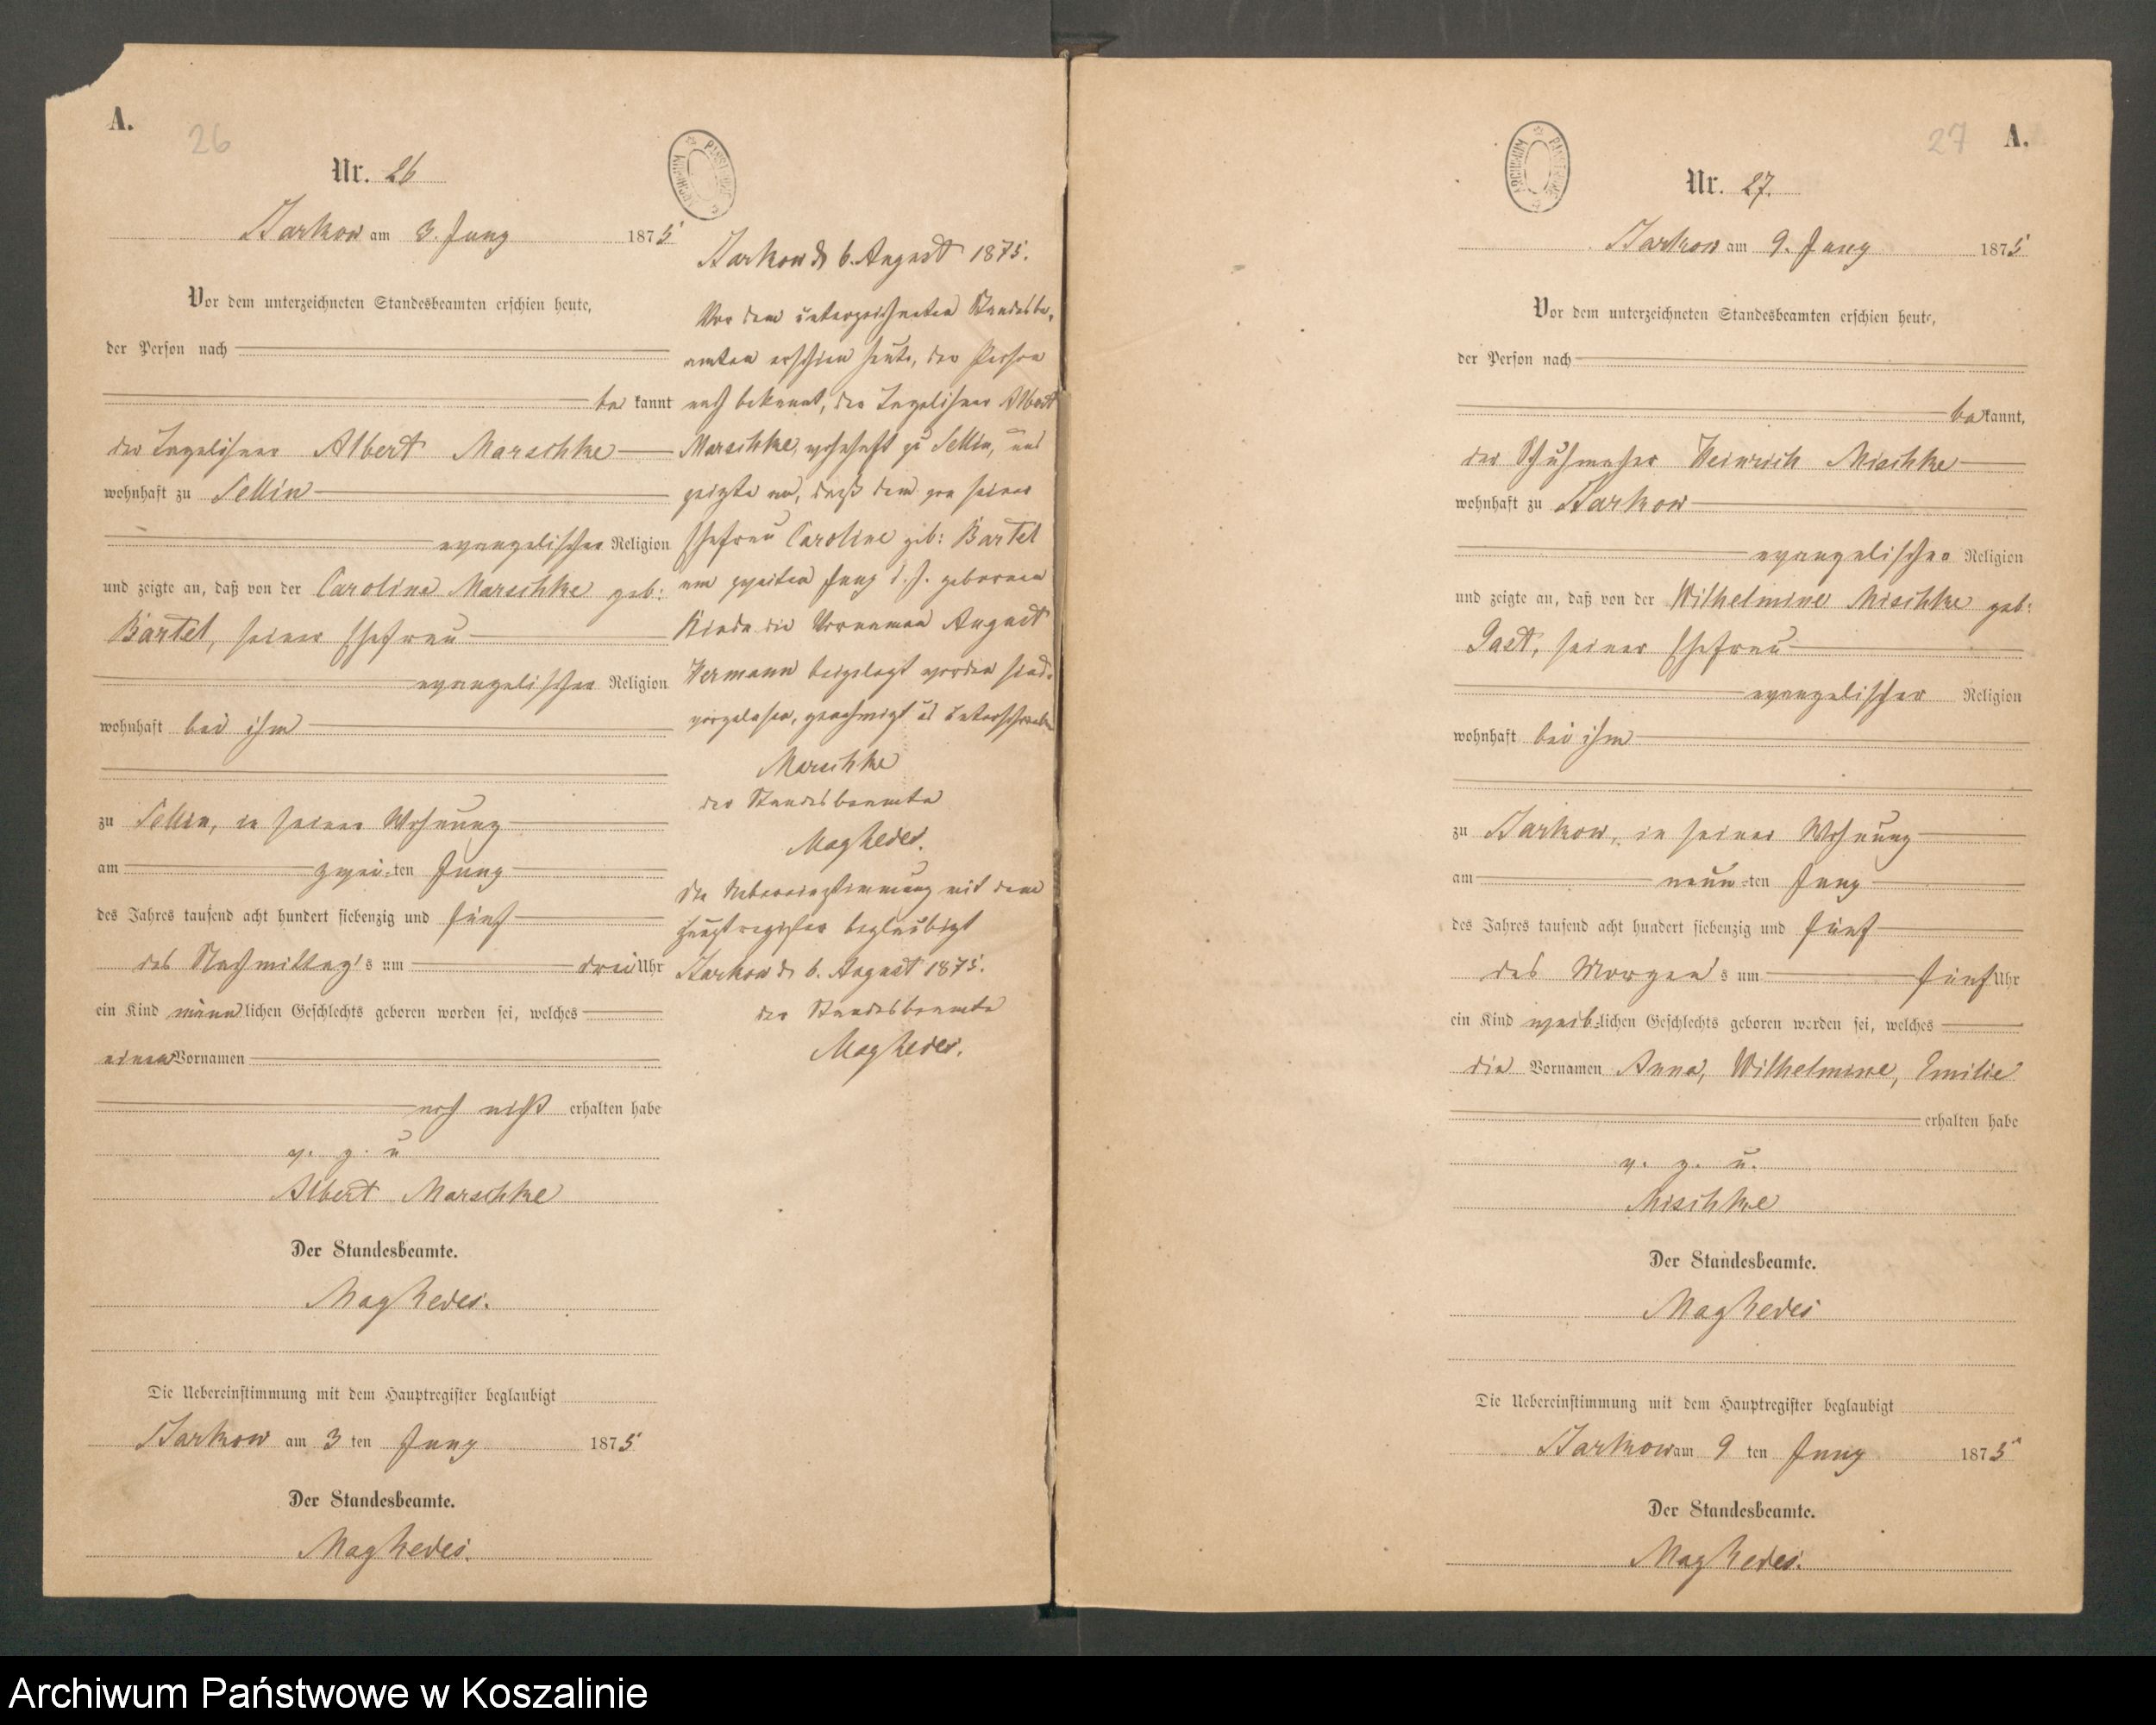 A.
26
Nr. 26
Barkow am 3. Juny 1875
Vor dem unterzeichneten Standesbeamten erschien heute,
der Person nach
be kannt
der Tagelöhner Albert Marschke
wohnhaft zu Sellin
evangelischer Religion
und zeigte an, daß von der Caroline Marschke geb:
Bartel, seiner Ehefrau
evangelischer Religion
wohnhaft bei ihm
zu Sellin, in seiner Wohnung
am zwei-ten Juny
des Jahres tausend acht hundert siebenzig und fünf
des Nachmittag's um drei Uhr
ein Kind männlichen Geschlechts geboren worden sei, welches
einen Vornamen
noch nicht erhalten habe
v. g. u
Albert Marschke
Der Standesbeamte.
Die Uebereinstimmung mit dem Hauptregister beglaubigt
Barkow am 3 ten Juny 1875
Der Standesbeamte.
PAŃSTWOWE ARCHIWUM
Barkow d 6. August 1875.
Vor dem unterzeichneten Standesbe-
amten erschien heute, der Person
nach bekannt, der Tagelöhner Albert
Marschke, wohnhaft zu Sellin, und
zeigte an, daß dem von seiner
Ehefrau Caroline geb: Bartel
am zweiten Juny d. J. geborenen
Kinde die Vornamen August
Hermann beigelegt worden sind.
vorgelesen, genehmigt u unterschrieben
Marschke
der Standesbeamte
Die Uebereinstimmung mit dem
Hauptregister beglaubigt
Barkow d. 6. August 1875.
der Standesbeamte
27
A.
PAŃSTWOWE ARCHIWUM
Nr. 27.
Barkow am 9. Juny 1875
Vor dem unterzeichneten Standesbeamten erschien heute,
der Person nach
be kannt,
der Schuhmacher Heinrich Mischke
wohnhaft zu Barkow
evangelischer Religion
und zeigte an, daß von der Wilhelmine Mischke geb:
Gast, seiner Ehefrau
evangelischer Religion
wohnhaft bei ihm
zu Barkow, in seiner Wohnung
am neun-ten Juny
des Jahres tausend acht hundert siebenzig und fünf
des Morgen's um fünf Uhr
ein Kind weib-lichen Geschlechts geboren worden sei, welches
die Vornamen Anna, Wilhelmine, Emilie
erhalten habe
v. g. u.
Mischke
Der Standesbeamte.
Die Uebereinstimmung mit dem Hauptregister beglaubigt
Barkow am 9 ten Juny 1875
Der Standesbeamte.
Archiwum Państwowe w Koszalinie